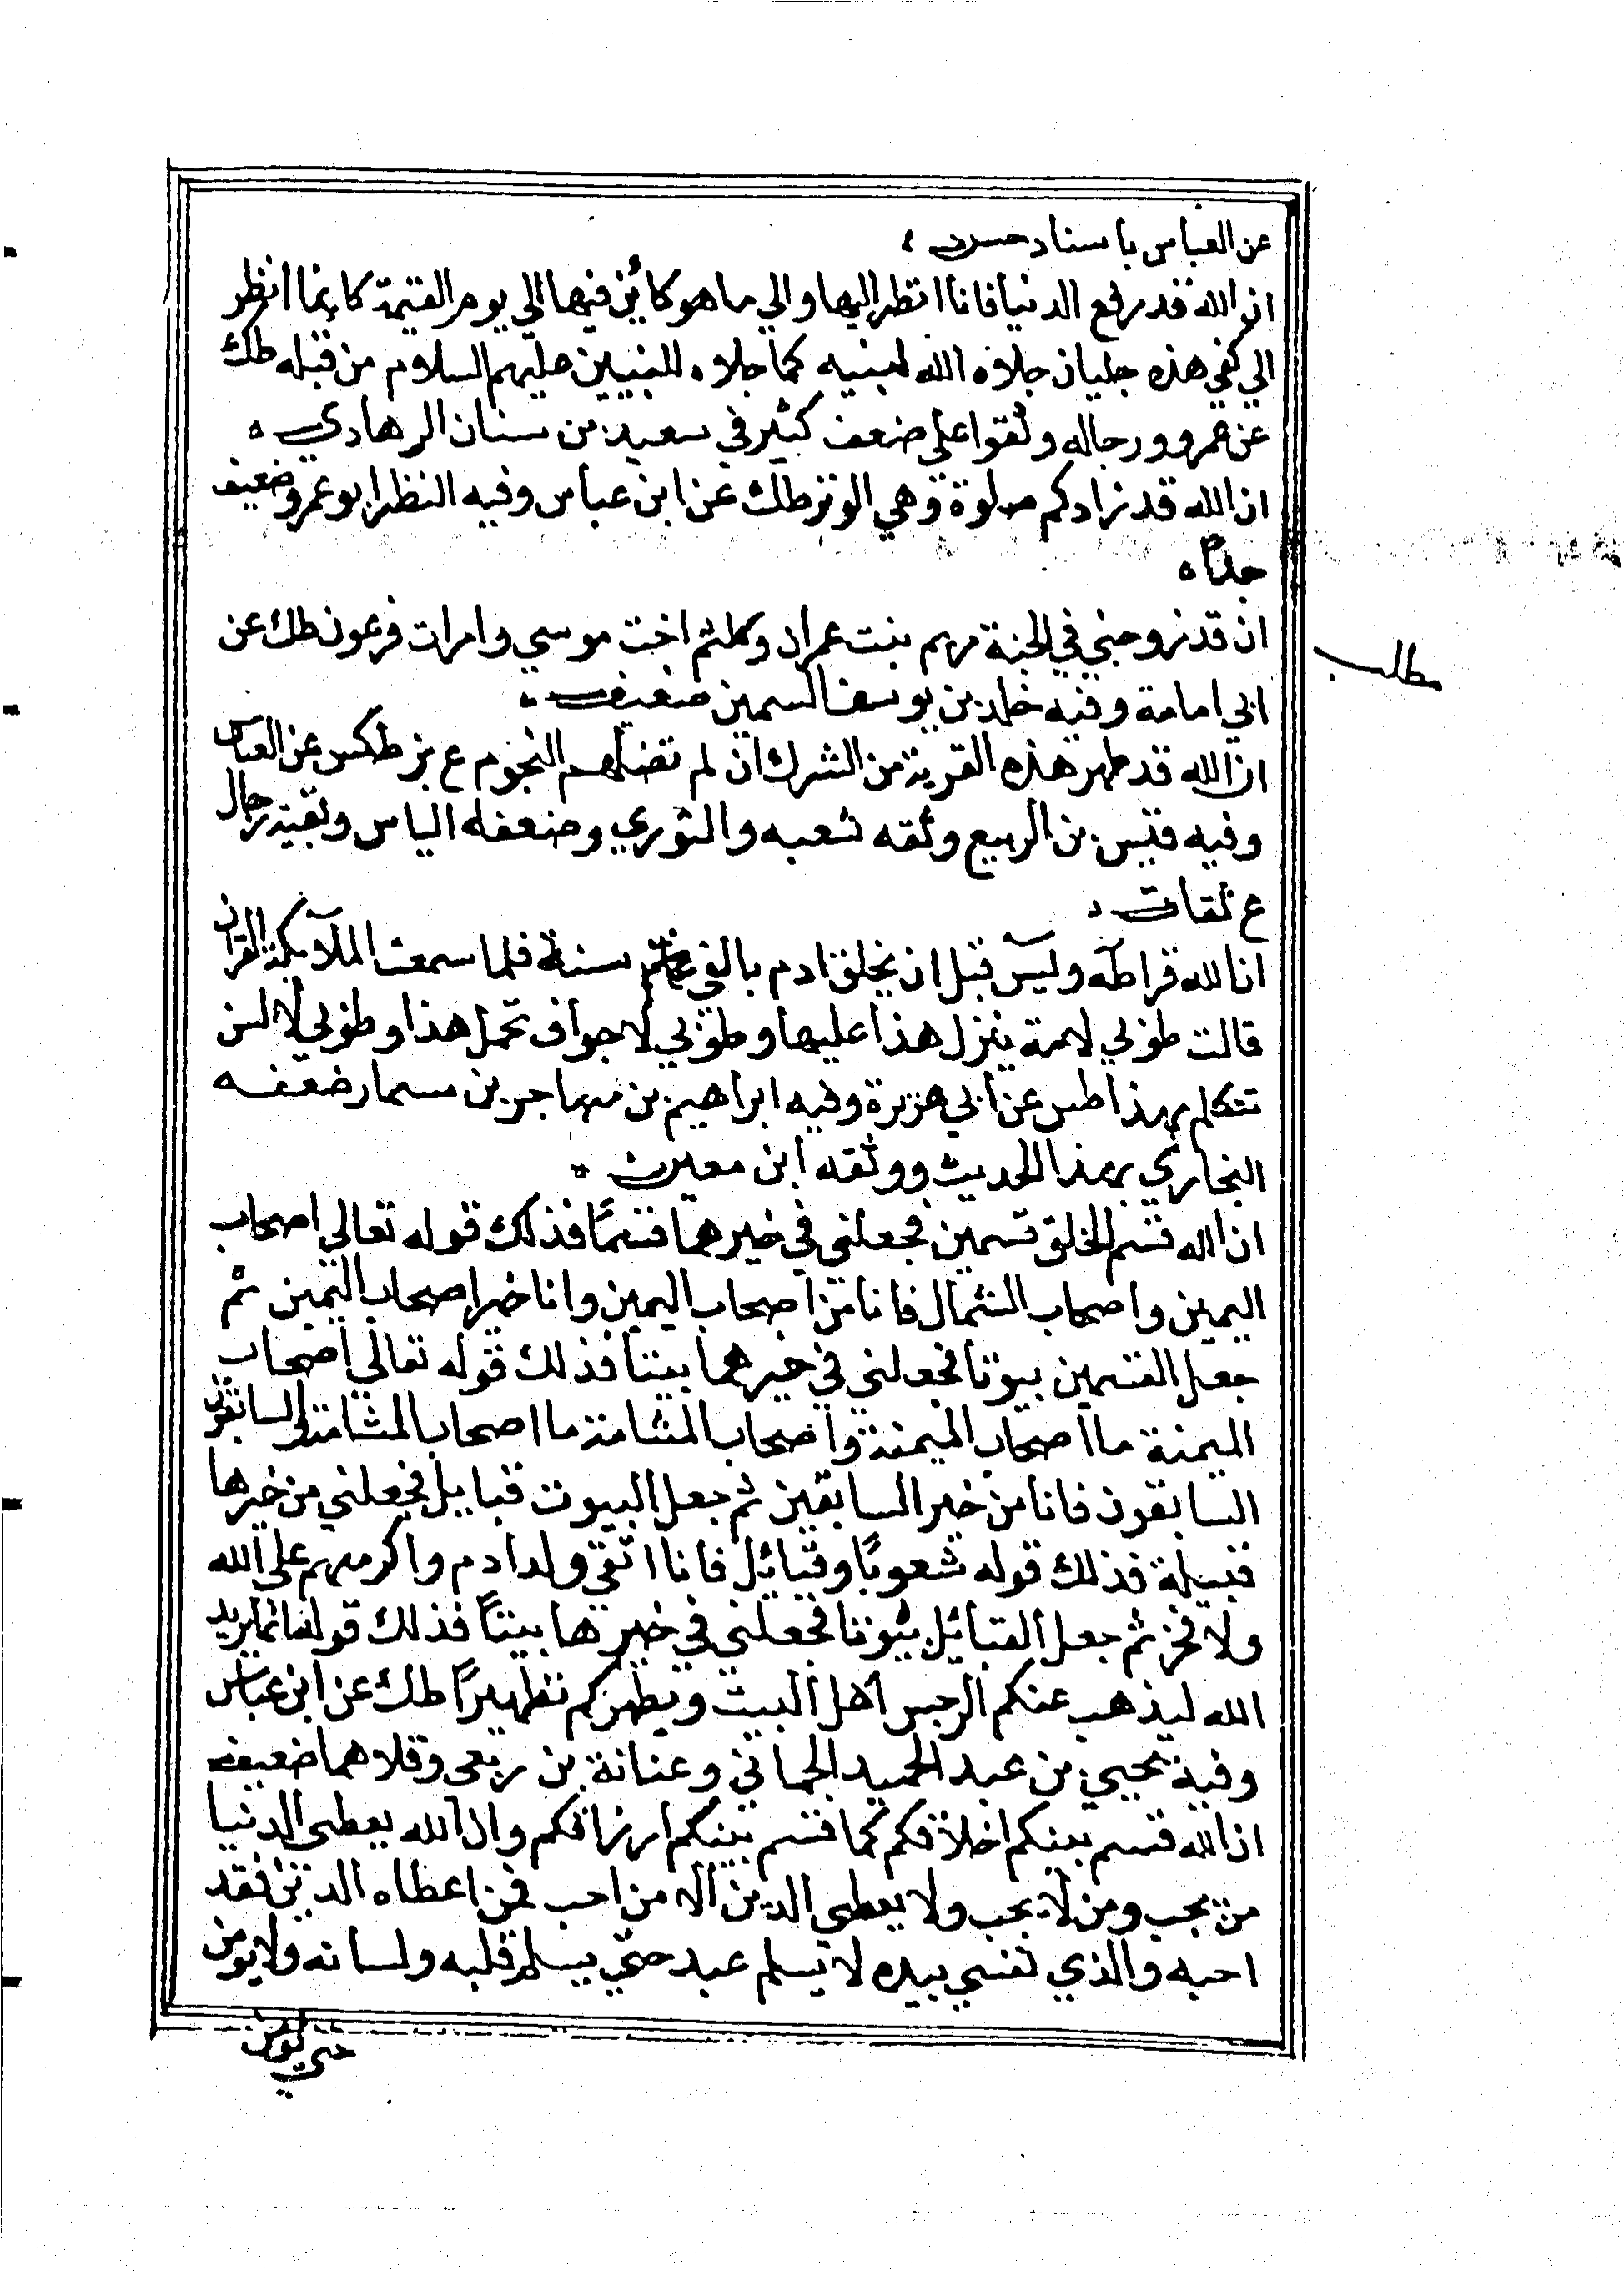 عن العباس باسناد حسن
ان الله قد رفع الدنيا فانا انظر اليها والي ما هو كائن فيها الي يوم القيمة كانما انظر
الي كفي هذه جليان جلاه الله لنبيه كما جلاه للنبيين عليهم السلام من قبله طك
عن عمرو ورجاله وثقوا علي ضعف كثير في سعيد بن سنان الرهادي
ان الله قد زادكم صلوة وهي الوتر طك عن ابن عباس وفيه النظر ابو عمرو ضعيف
جدًا
ان قد زوجني في الجنة مريم بنت عمران وكلثم اخت موسي وامرات فرعون طك عن
مطلب
ابي امامة وفيه خالد بن يوسف السمين ضعيف
ان الله قد طهر هذه القرية من الشرك ان لم تضلهم النجوم ع بز طكس عن العباس
وفيه قيس بن الربيع وثقه شعبه والثوري وضعفه الياس وبقية رجال
ع ثقات
ان الله قرا طه ويس قبل ان يخلق ادم بالفي عام سنة فلما سمعت الملآئكة القران
قالت طوبي لامة ينزل هذا عليها وطوبي لاجواف تحمل هذا وطوبي لالسن
تتكلم بهذا طس عن ابي هريرة وفيه ابراهيم بن مهاجر بن سمار ضعفه
البخاري بهذا الحديث ووثقه ابن معين
ان الله قسم الخلق قسمين فجعلني في خيرهما قسمًا فذلك قوله تعالي اصحاب
اليمين واصحاب الشمال فانا من اصحاب اليمين وانا خير اصحاب اليمين ثم
جعل القسمين بيوتا فجعلني في خيرهما بيتا فذلك قوله تعالي اصحاب
الميمنة ما اصحاب الميمنة واصحاب المشامة ما اصحاب المشامة والسابقون
السابقون فانا من خير السابقين ثم جعل البيوت قبايل فجعلني من خيرها
قبيلة فذلك قوله شعوبًا وقبائل فانا اتقي ولد ادم واكرمهم علي الله
ولا فخر ثم جعل القبائل بيوتا فجعلني في خيرها بيتًا فذلك قوله انما يريد
الله ليذهب عنكم الرجس اهل البيت ويطهركم تطهيرًا طك عن ابن عباس
وفيه يحيي بن عبد الحميد الحماني وعنانة بن ربعي وقلاهما ضعيف
ان الله قسم بينكم اخلاقكم كما قسم بينكم ارزاقكم وان الله يعطي الدنيا
من يحب ومن لا يحب ولا يعطي الدين الا من احب فمن اعطاه الدين فقد
احبه والذي نفسي بيده لا يسلم عبد حتي يسلم قلبه ولسانه ولا يومن
حتي يومن